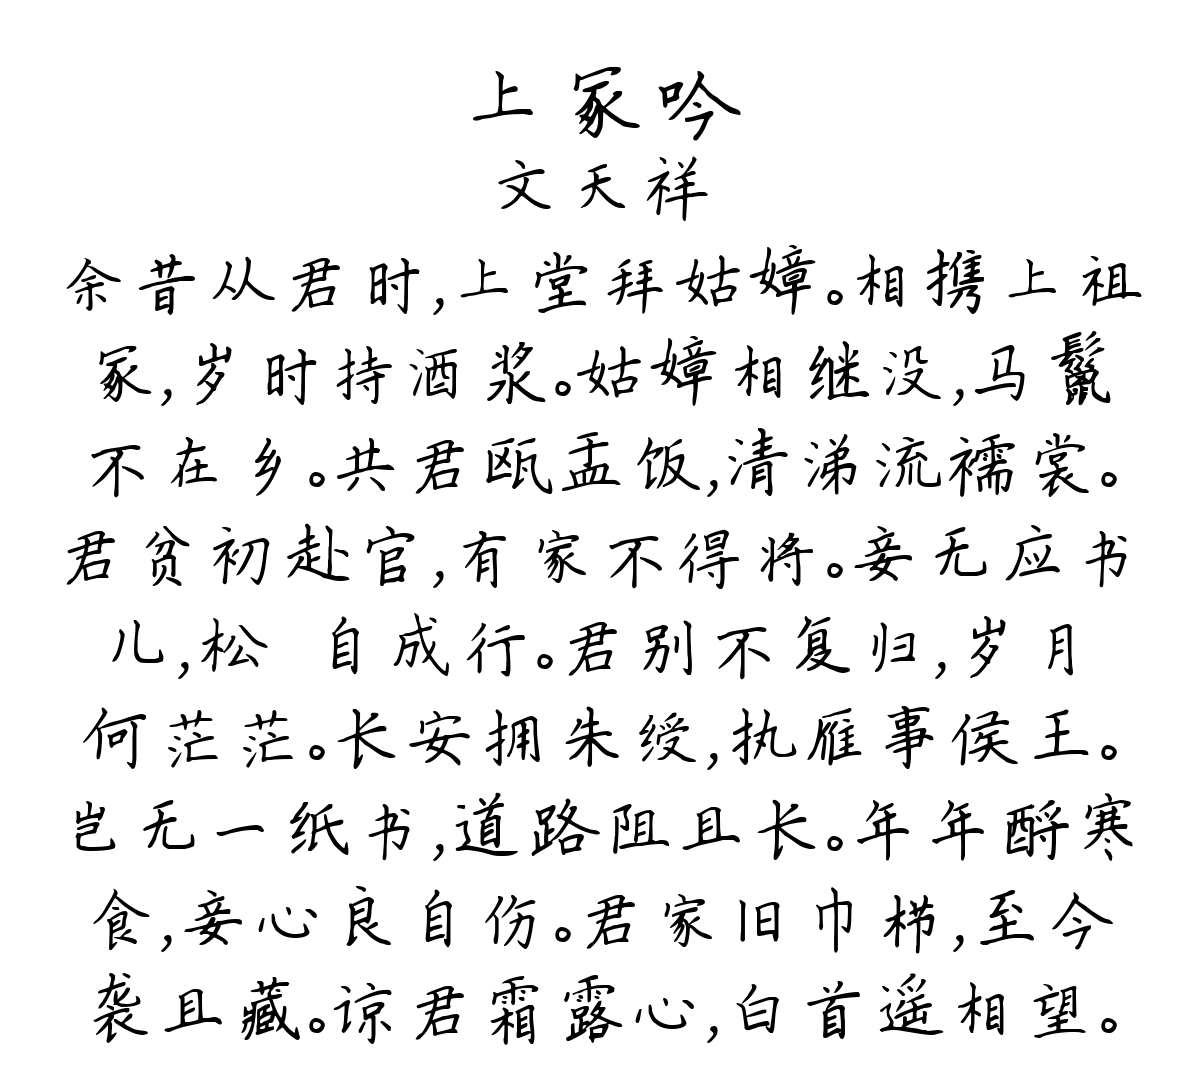 上冢吟
文天祥
余昔从君时,上堂拜姑嫜。相携上祖
冢,岁时持酒浆。姑嫜相继没,马鬣
不在乡。共君瓯盂饭,清涕流襦裳。
君贫初赴官,有家不得将。妾无应书
儿,松 自成行。君别不复归,岁月
何茫茫。长安拥朱绶,执雁事侯王。
岂无一纸书,道路阻且长。年年酹寒
食,妾心良自伤。君家旧巾栉,至今
袭且藏。谅君霜露心,白首遥相望。